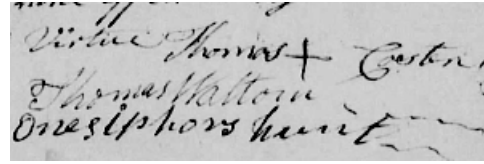 Virtue Thomas + Coston
Thomas Waltom
Onesiphors hunt